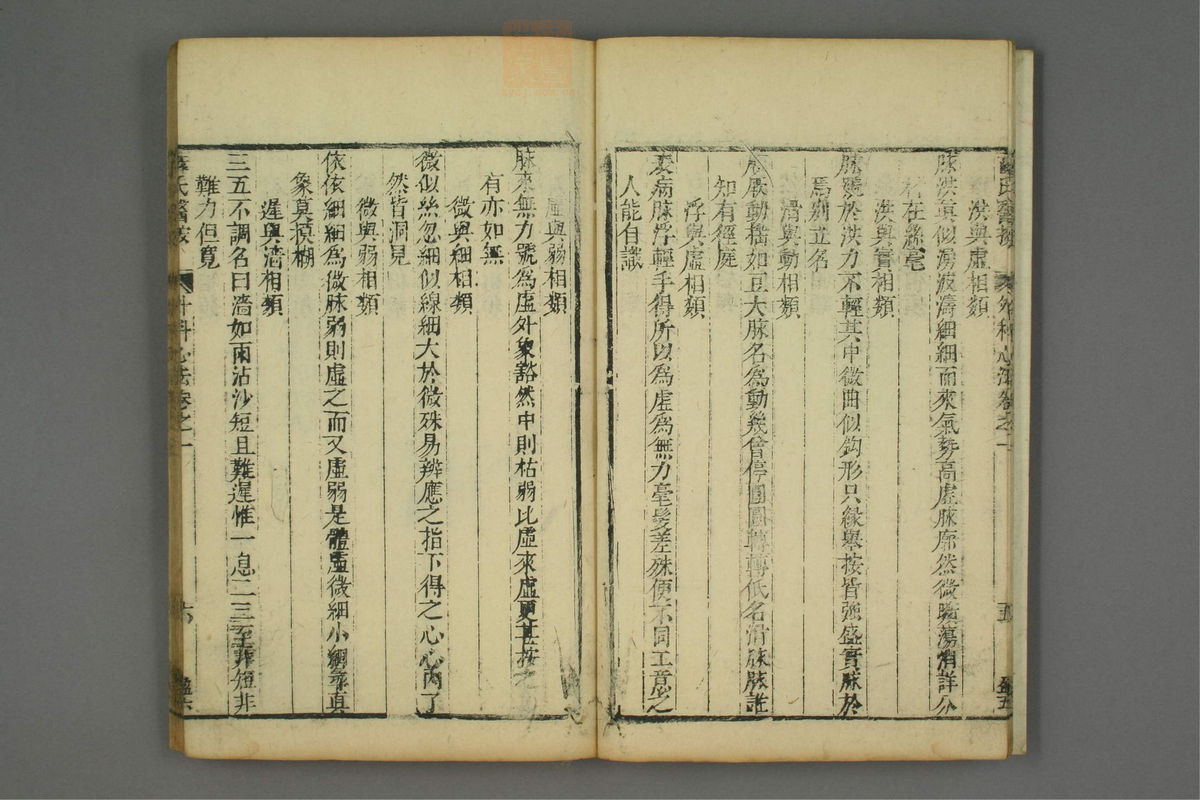 薛氏醫按 外科心法卷之一 五 盈五
洪與虛相類
脉洪真似湧波濤細細而來氣勢高虛脉廓然微蕩瀟詳分
有在絲毫
洪與實相類
脉號於洪力不輕其中微曲似鈎形只緣舉按皆強盛實脉於
焉别立名
滑與動相類
厥厥動搖如豆大脉名為動幾曾停團圓轉轉低名滑脉脉誰
知有徑庭
浮與虛相類
表病脉浮輕手得所以為虛為無力毫髮差殊便不同工意之
人能自識
虛與弱相類
脉來無力號為虛外象豁然中則枯弱比虛來虛更甚按之
有亦如無
微與細相類
微似絲忽細似線細大於微殊易辨應之指下得之心心內了
然皆洞見
微與弱相類
依依細細為微脉弱則虛之而又虛弱是體虛微細小細尋真
象莫摸糊
遲與濇相類
三五不調名曰濇如雨沾沙短且難遲惟一息二三至非短非
難力但寬
薛氏醫按 外科心法卷之一 六 盈六